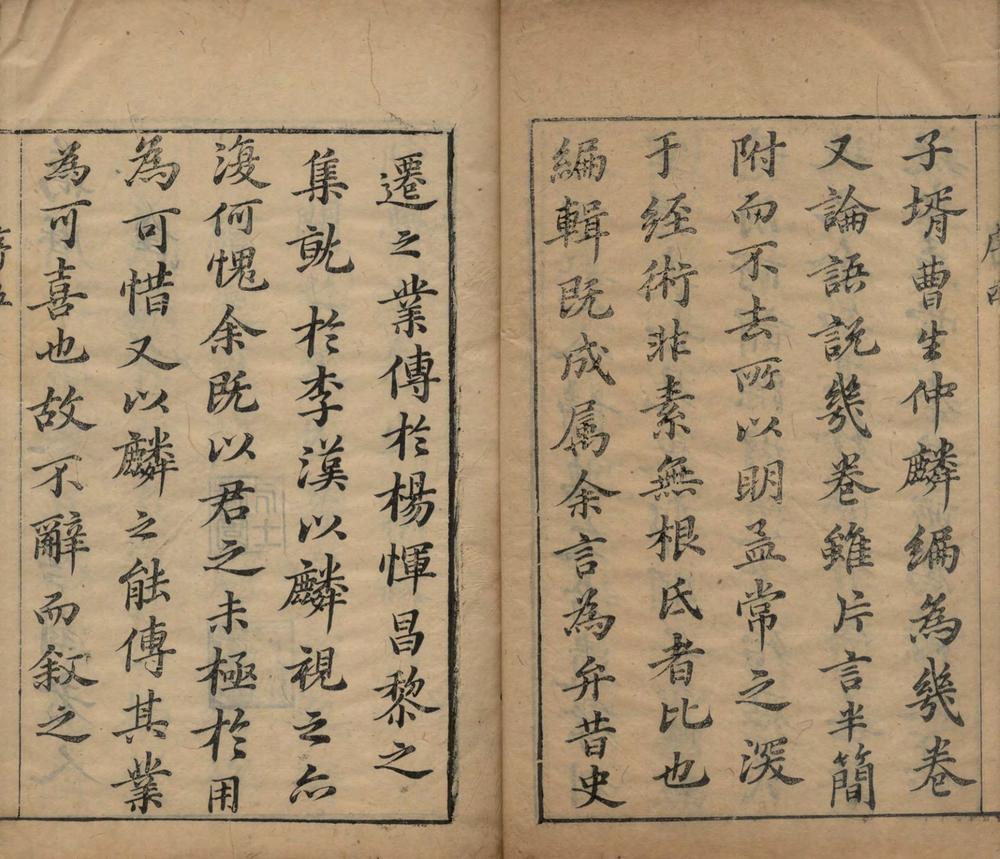 子壻曹生仲麟編為幾卷
又論語説幾卷雖片言半簡
附而不去所以明孟常之深
于經術非素無根氐者比也
編輯既成属余言為弁昔史
遷之業傳於楊惲昌黎之
集就於李漢以麟視之亦
復何愧余既以君之未極於用
為可惜又以麟之能傳其業
為可喜也故不辭而敘之